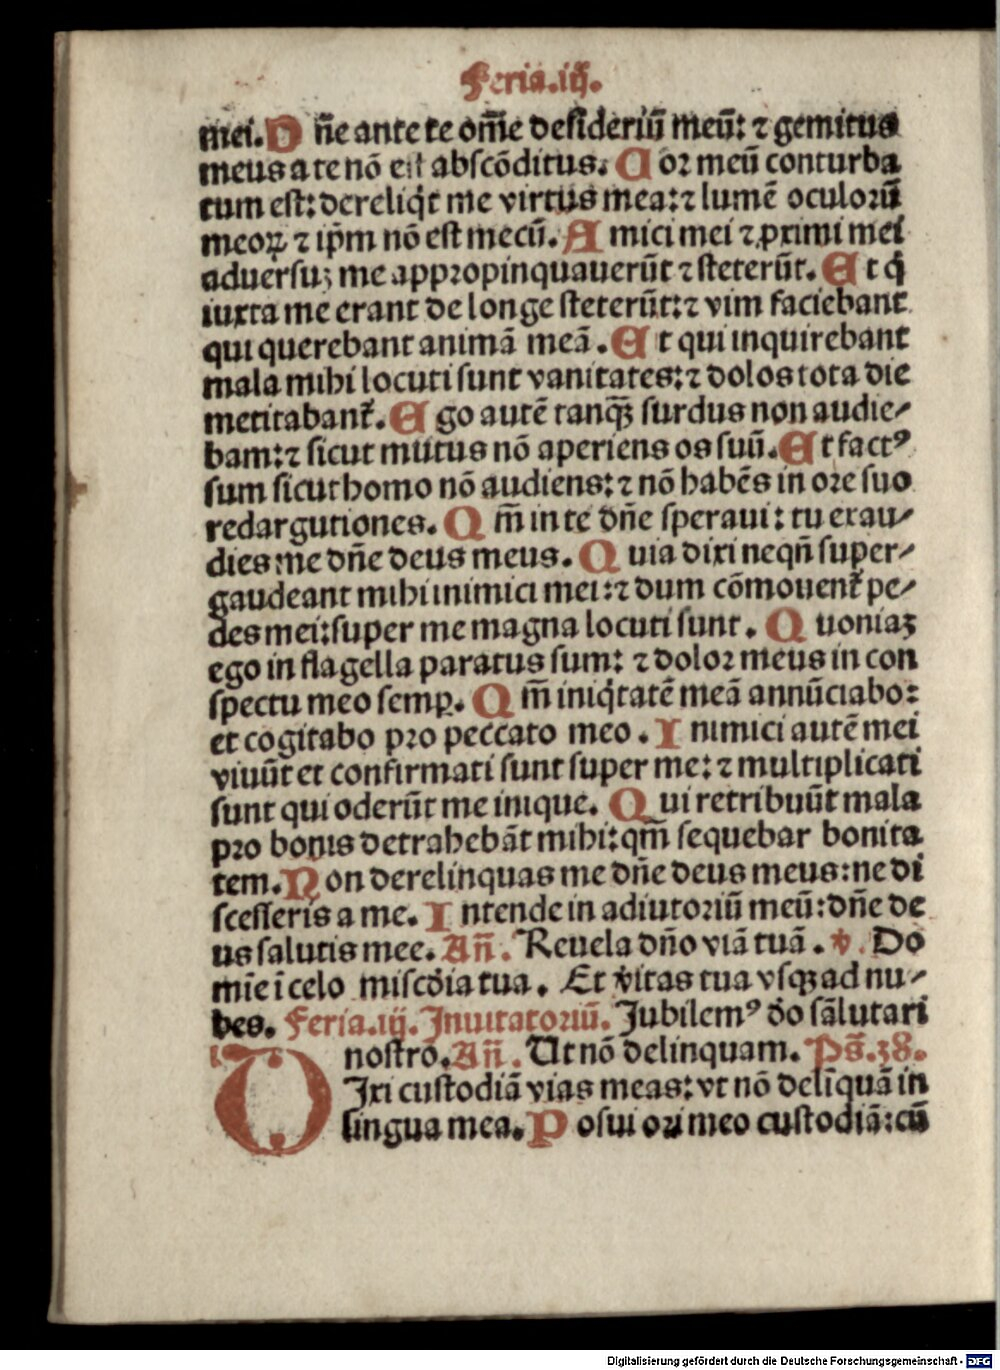 Feria.iij.
mei. D ñe ante te om̄e desideriū meū: ⁊ gemitus
meus a te nō est abscōditus. C or meū conturba
tum est: dereliq̇t me virtus mea: ⁊ lumē oculorū
meoꝝ ⁊ ip̄m nō est mecū. A mici mei ⁊ ꝓximi mei
aduersuꝫ me appropinquauerūt ⁊ steterūt. E t q̇
iuxta me erant de longe steterūt: ⁊ vim faciebant
qui querebant animā meā. E t qui inquirebant
mala mihi locuti sunt vanitates: ⁊ dolos tota die
metitabant᷑. E go autē tanq̄ꝫ surdus non audie⸗
bam: ⁊ sicut mutus nō aperiens os suū. E t factꝰ
sum sicut homo nō audiens: ⁊ nō habēs in ore suo
redargutiones. Q m̄ in te dn̄e speraui: tu exau⸗
dies me dn̄e deus meus. Q uia dixi neqn̄ super⸗
gaudeant mihi inimici mei: ⁊ dum cōmouent᷑ pe⸗
des mei: super me magna locuti sunt. Q uoniaꝫ
ego in flagella paratus sum: ⁊ dolor meus in con
spectu meo semꝑ. Q m̄ iniq̇tatē meā annūciabo:
et cogitabo pro peccato meo. I nimici autē mei
viuūt et confirmati sunt super me: ⁊ multiplicati
sunt qui oderūt me inique. Q ui retribuūt mala
pro bonis detrahebāt mihi: qm̄ sequebar bonita
tem. N on derelinquas me dn̄e deus meus: ne di
scesseris a me. I ntende in adiutoriū meū: dn̄e de
us salutis mee. Añ. Reuela dn̄o viā tuā. ℣. Do
mīe ī celo miscd̄ia tua. Et v̄itas tua vsqꝫ ad nu⸗
bes. Feria.iij. Inuitatoriū. Jubilemꝰ d̄o sālutari
nostro. Añ. Ut nō delinquam. Ps̄.38.
D Ixi custodiā vias meas: vt nō delīquā in
lingua mea. P osui ori meo custodiā: cū
Digitalisierung gefördert durch die Deutsche Forschungsgemeinschaft - DFG